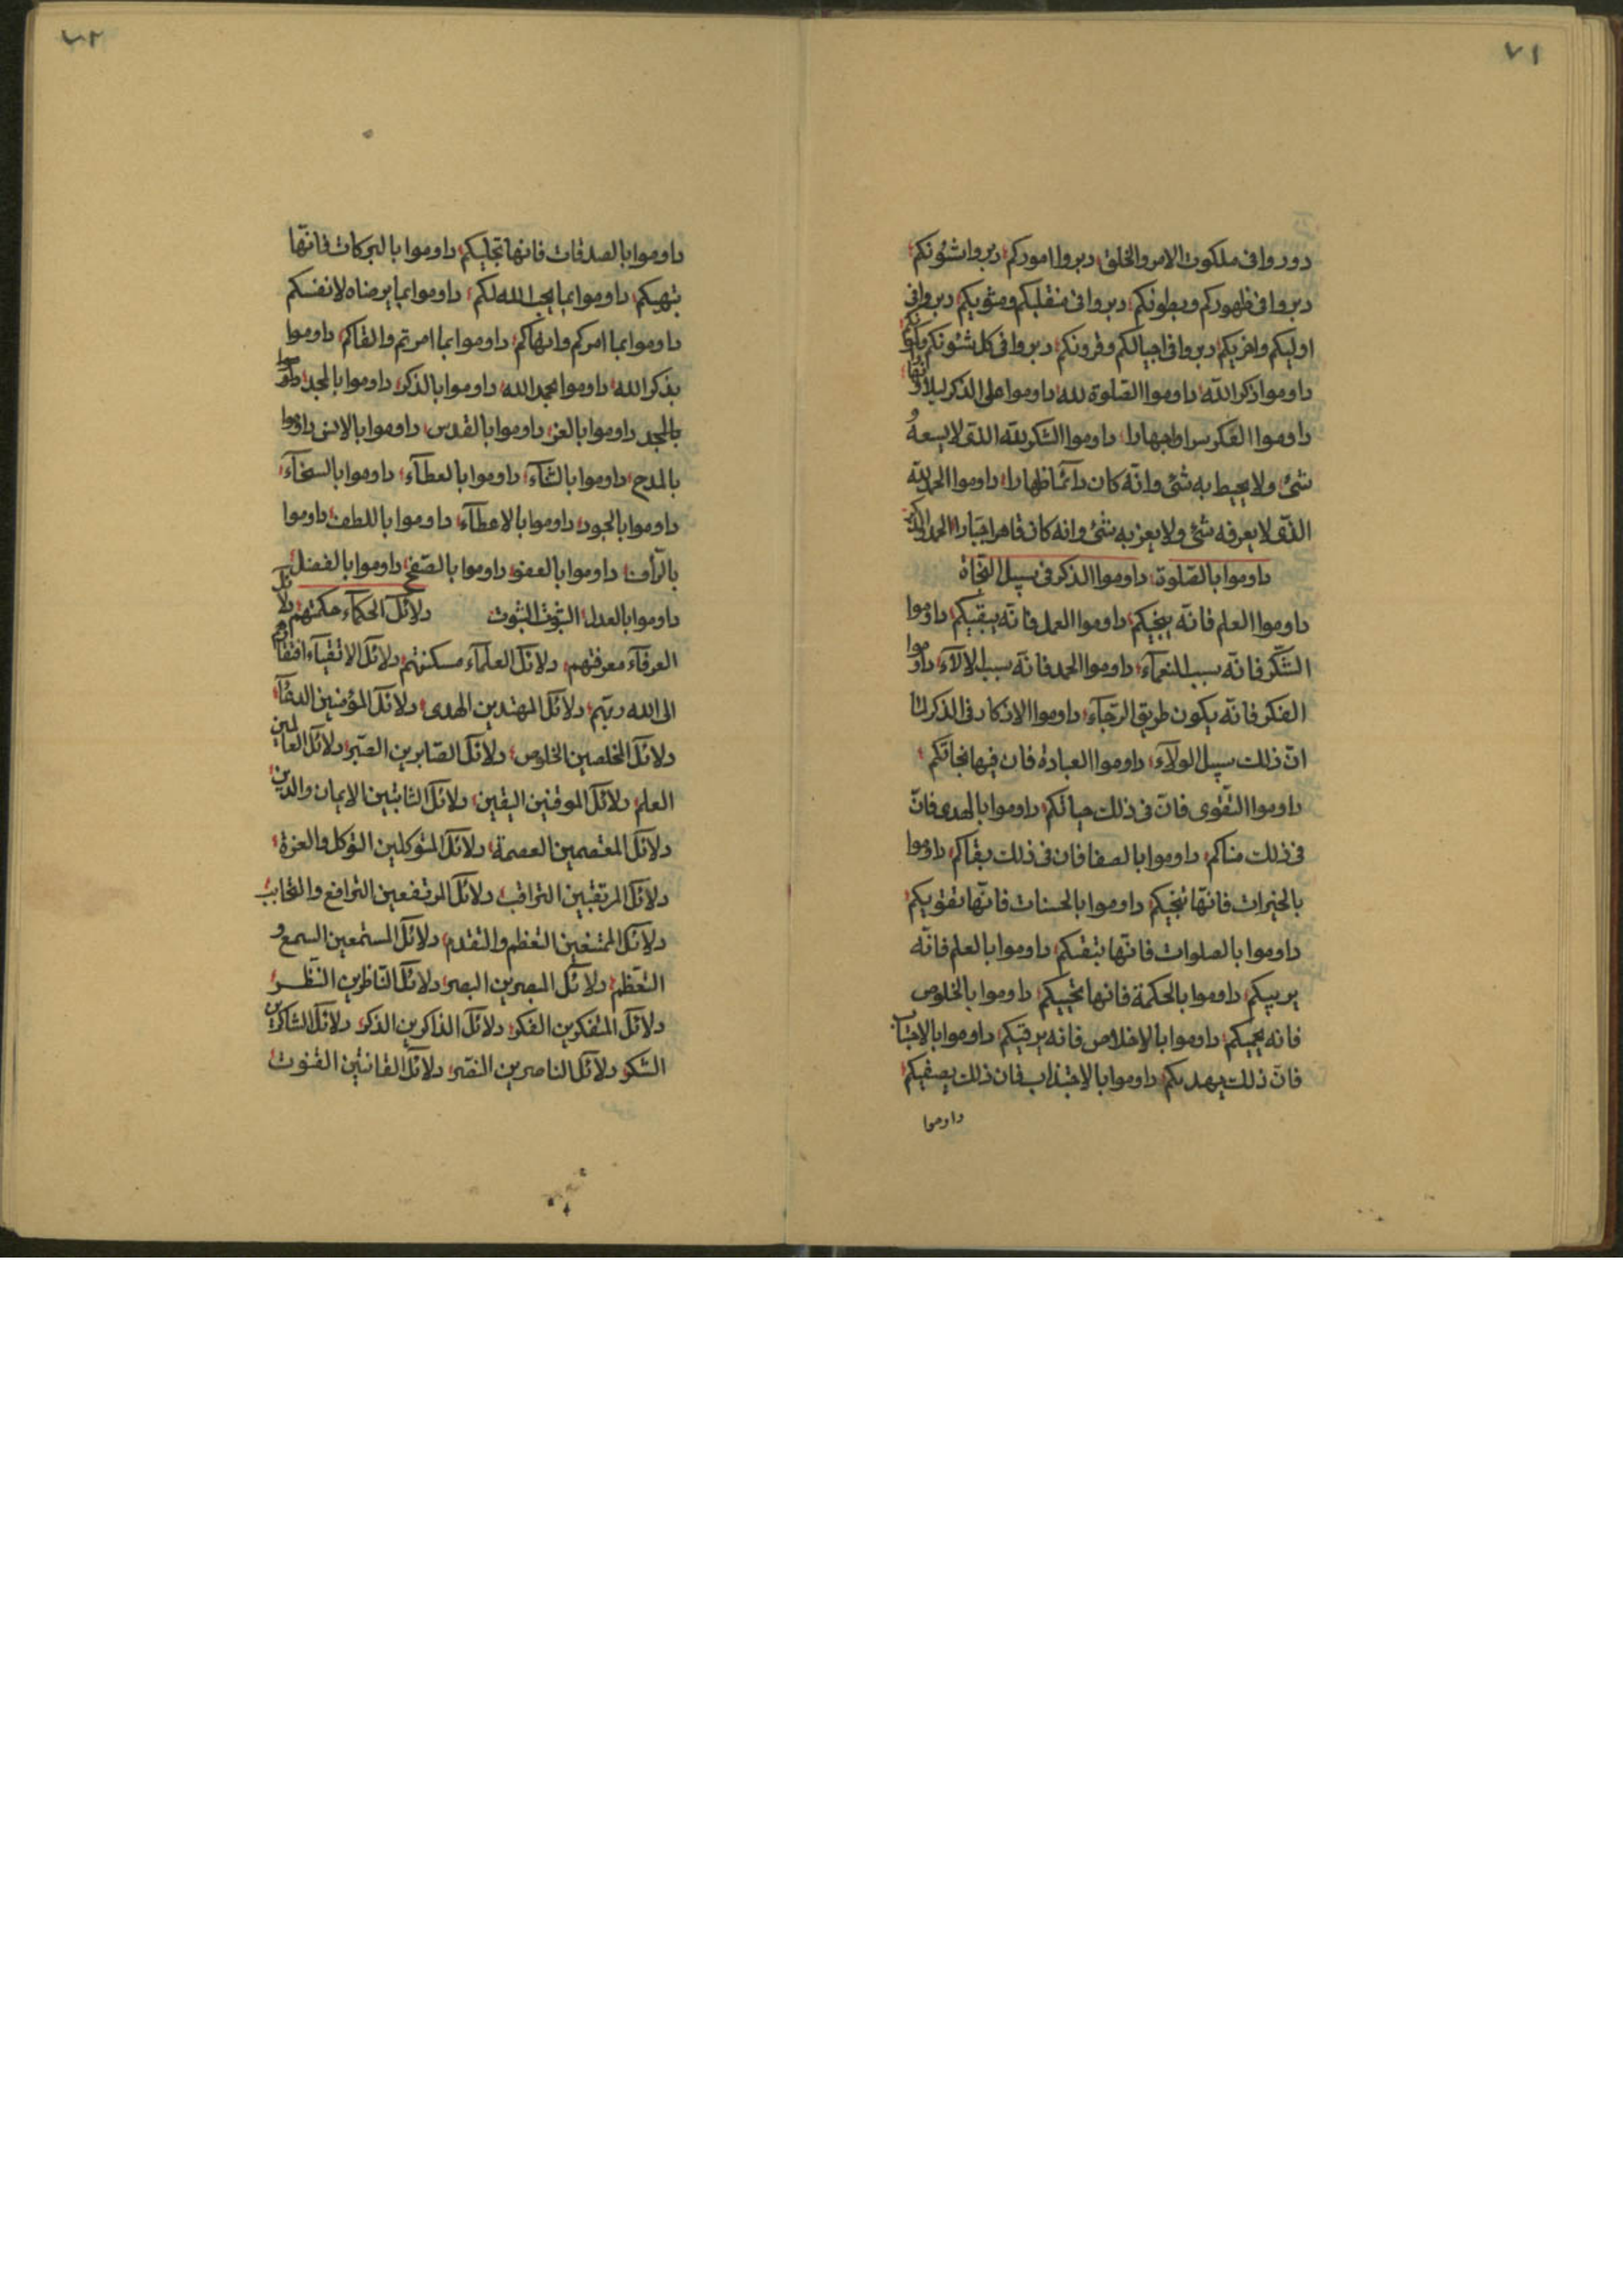 ٧١
دوروا فى ملكوت الامر والخلق دبروا اموركم دبروا شؤنكم
دبروا فى ظهوركم وبطونكم دبروا فى منقلبكم ومثويكم دبروا فى
اوليكم واخريكم دبروا فى اجيالكم وقرونكم دبروا فى كل شئونكم
داوموا ذكر الله داوموا الصلوة لله داوموا على الذكر ليلا و
داوموا الفكر سرا وجهارا داوموا الشكر لله الذى لا يسعهُ
شئ ولا يحيط به شئ وانّه كان دائما ظهارا داوموا الحمد لله
الذى لا يعرفه شئ ولا يعزبه شئ وانه كان قاهرا جبارا الحمد
داوموا بالصّلوة داوموا الذكر فى سبيل النجاة
داوموا العلم فانّه ينجيكم داوموا العمل فانّه يبقيكم داوموا
الشكر فانّه سبب النعمآء داوموا الحمد فانّه سبب الالآء داوموا
الفكر فانّه يكون طريق الرجآء داوموا الاذكار فى الذكر
انّ ذلك سبيل الولآء داوموا العبادة فان فيها نجاتكم
داوموا التقوى فانّ فى ذلك حياتكم داوموا بالهدى فانّ
فى ذلك مناكم داوموا بالصفا فان فى ذلك بقاكم داوموا
بالخيرات فانّها تنجيكم داوموا بالحسنات فانّها تقويكم
داوموا بالصلوات فانّها تبقيكم داوموا بالعلم فانّه
يربيكم داوموا بالحكمة فانها تحييكم داوموا بالخلوص
فانه يحميكم داوموا بالاخلاص فانه يرقيكم داوموا
فانّ ذلك يهديكم داوموا بالاجتذاب فان ذلك يصفيكم
داوموا
٧٢
داوموا بالصدقات فانها تجليكم داوموا بالبركات فانّها
داوموا بما يحب الله لكم داوموا بما يرضاه لانفسكم
داوموا بما امركم وانهاكم داوموا بما امرتم والقاكم داوموا
بذكر الله داوموا بحمد الله داوموا بالذكر داوموا بالمجد داوموا
بالمجد داوموا بالعز داوموا بالقدس داوموا بالانس داوموا
بالمدح داوموا بالثنآء داوموا بالعطآء داوموا بالسخآء
داوموا بالجود داوموا بالاعطآء داوموا باللطف داوموا
بالرأفة داوموا بالعفو داوموا بالصّفح داوموا بالفضل
داوموا بالعدل الثبوت الثبوت دلائل الحكمآء حكمتهم دلائل
العرفآء معرفتهم دلائل العلمآء مسكنتهم دلائل الاتقيآء افتقارهم
الى الله ربّهم دلائل المهتدين الهدى دلائل المؤمنين
دلائل المخلصين الخلوص دلائل الصّابرين الصّبر دلائل العالمين
العلم دلائل الموقنين اليقين دلائل الثابتين الايمان والدين
دلائل المعتصمين العصمة دلائل المتوكلين التوكل والعزة
دلائل المرتقبين التراقب دلائل المرتفعين الترافع والتحابب
دلائل التعظم والتقدم دلائل المستمعين السمع و
التعظم دلائل المبصرين البصر دلائل النّاظرين النّظر
دلائل المتفكرين الفكر دلائل الذاكرين الذكر دلائل الشاكرين
الشكر دلائل الناصرين النصر دلائل القانتين القنوت